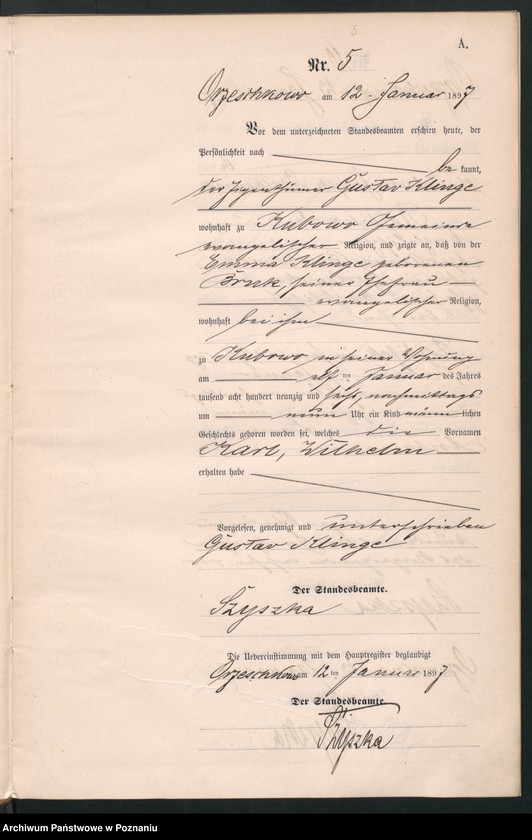 A.
Nr. 5
Orzeschkowo am 12. Januar 1897
Vor dem unterzeichneten Standesbeamten erschien heute, der
Persönlichkeit nach be kannt,
der Eigenthümer Gustav Klinge
wohnhaft zu Kubowo Gemeinde
evangelischer Religion, und zeigte an, daß von der
Emma Klinge geborenen
seiner Ehefrau
evangelischer Religion,
wohnhaft bei ihm
zu Kubowo in seiner Wohnung
am elf ten Januar des Jahres
tausend acht hundert neunzig und nachmittags
um neun Uhr ein Kind männlichen
Geschlechts geboren worden sei, welches die Vornamen
Karl, Wilhelm
erhalten habe
Vorgelesen, genehmigt und unterschrieben
Gustav Klinge
Der Standesbeamte.
Szyszka
Die Uebereinstimmung mit dem Hauptregister beglaubigt
Orzeschkowo am 12 ten Januar 1897
Der Standesbeamte
Szyszka
Archiwum Państwowe w Poznaniu